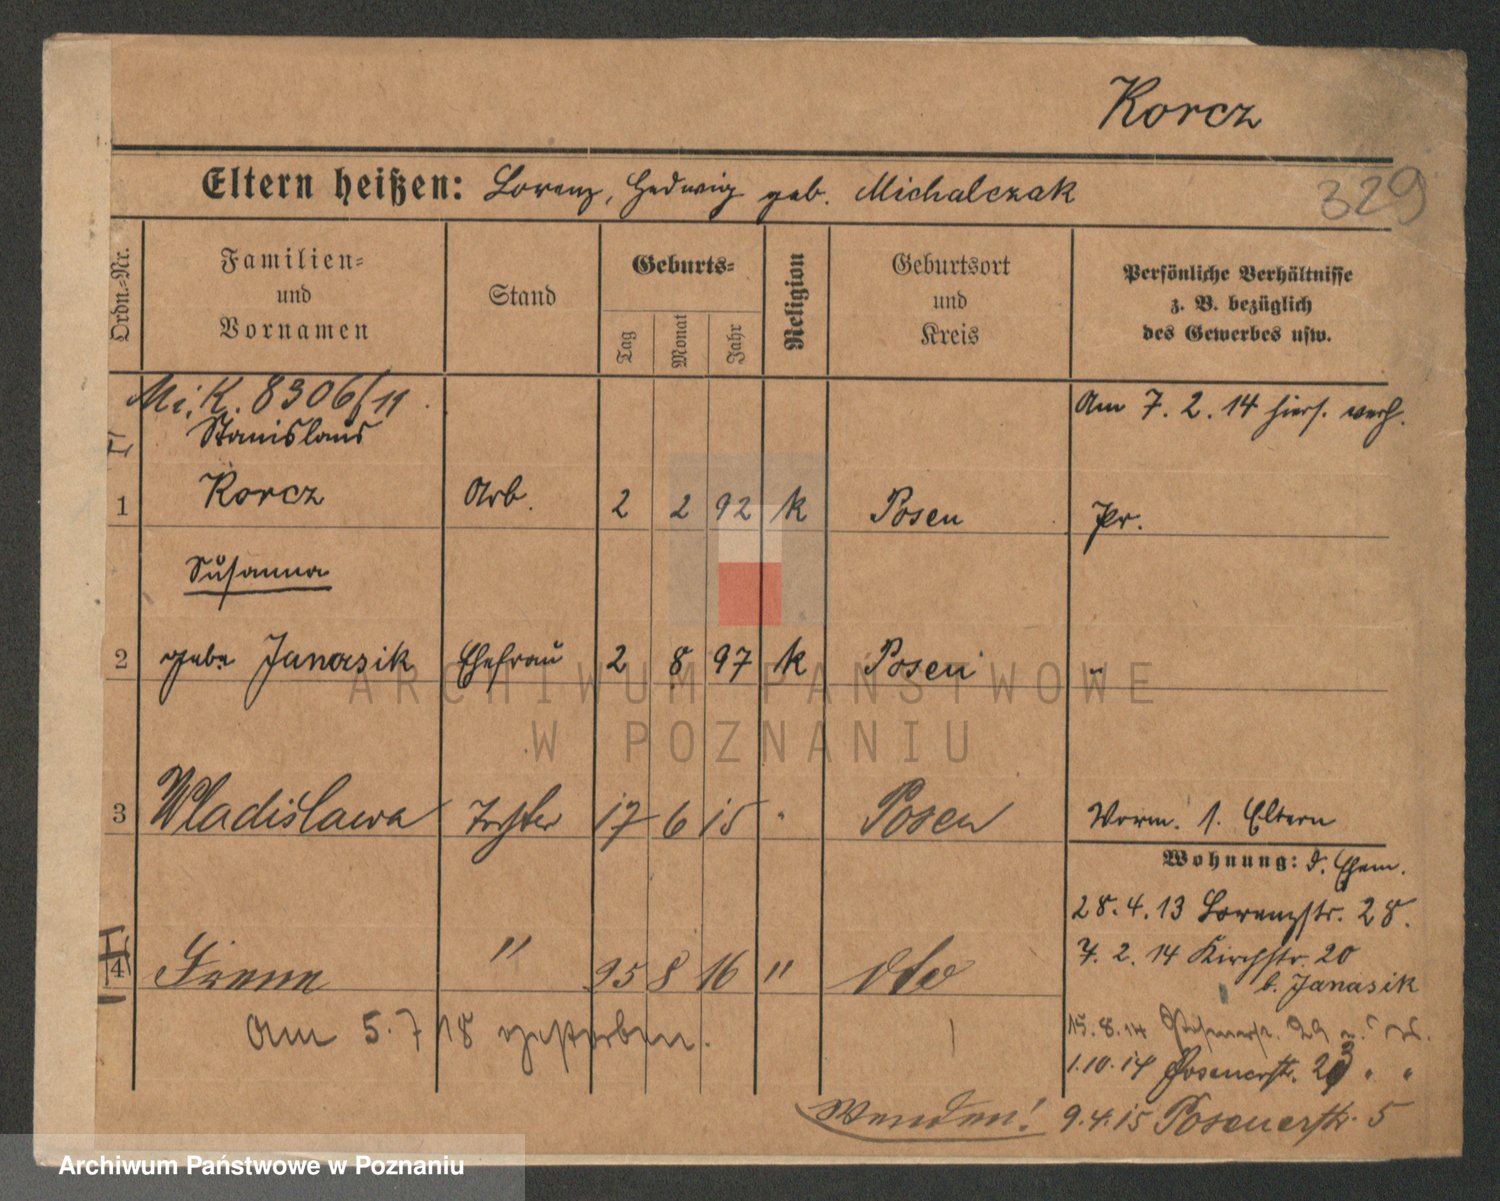 Korcz
Eltern heißen: Lorenz, Hedwig geb. Michalczak
329
Ordn.-Nr.
Familien-
und
Vornamen
Stand
Geburts-
Tag
Monat
Jahr
Religion
Geburtsort
und
Kreis
Persönliche Verhältnisse
z. B. bezüglich
des Gewerbes usw.
Mi. K. 8306/11
Am 7. 2. 14 hiers. verh.
Stanislaus
1 Korcz Arb. 2 2 92 k Posen Pr.
Susanna
2 geb. Janasik Ehefrau 2 8 97 k Posen "
3 Wladislawa Tochter 17 6 15 " Posen Vorm. s. Eltern
Wohnung: d. Ehem.
28. 4. 13 Lorenzstr. 28.
7. 2. 14 Kirchstr. 20
b. Janasik
4 Irena " 25 8 16 " dto
Am 5. 7 18 gestorben.
15. 8. 14 29
1. 10. 14 Posenerstr. 23 " "
Wenden! 9. 4. 15 Posenerstr. 5
ARCHIWUM PAŃSTWOWE
W POZNANIU
Archiwum Państwowe w Poznaniu